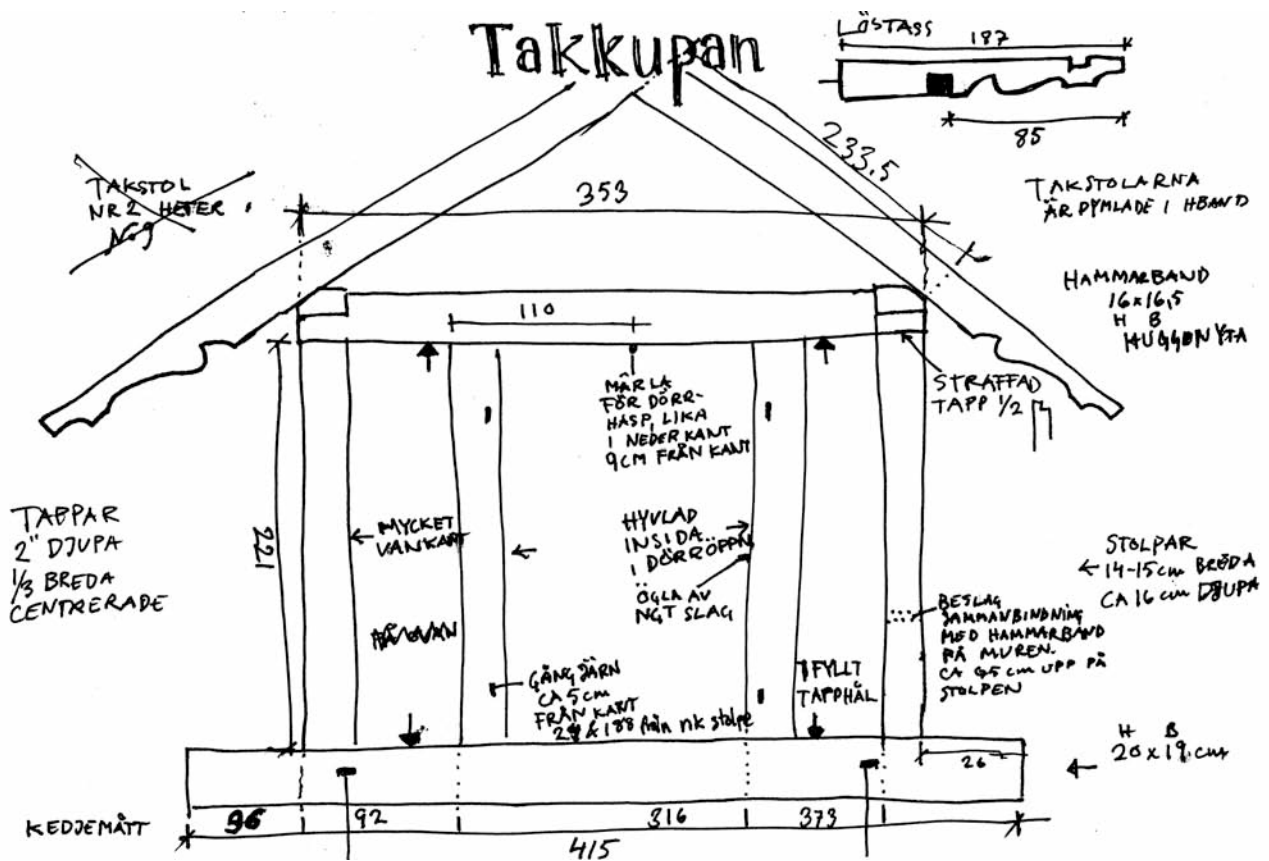 Takkupan
LÖSTASS
187
85
233,5
TAKSTOL
NR 2 HETER
No 9
353
TAKSTOLARNA
ÄR DYMLADE I HBAND
HAMMARBAND
16 x 16,5
H B
HUGGEN YTA
110
MÄRLA
FÖR DÖRR-
HASP, LIKA
I NEDERKANT
9CM FRÅN KANT
STRAFFAD
TAPP 1/2
TAPPAR
2" DJUPA
1/3 BREDA
CENTRERADE
221
MYCKET
VANKANT
HYVLAD
INSIDA
I DÖRRÖPPN
ÖGLA AV
NGT SLAG
STOLPAR
14-15cm BREDA
CA 16 cm DJUPA
BESLAG
SAMMANBINDNING
MED HAMMARBAND
PÅ MUREN.
CA 95 cm UPP PÅ
STOLPEN
GÅNGJÄRN
CA 5cm
FRÅN KANT
& 188 från nk stolpe
IFYLLT
TAPPHÅL
26
H B
20 x 19 cm
KEDJEMÅTT
96
92
316
373
415